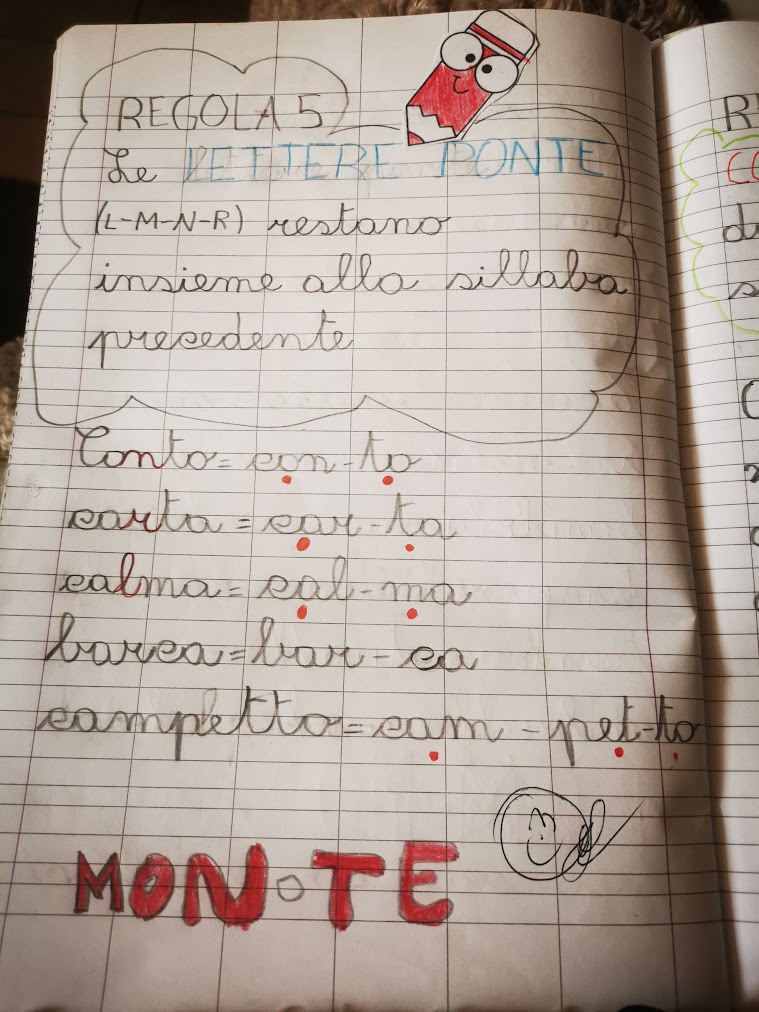 REGOLA 5
Le LETTERE PONTE
(L-M-N-R) restano
insieme alla sillaba
precedente
Conto = con-to
carta = car-ta
calma = cal-ma
barca = bar-ca
campetto = cam-pet-to
MON-TE